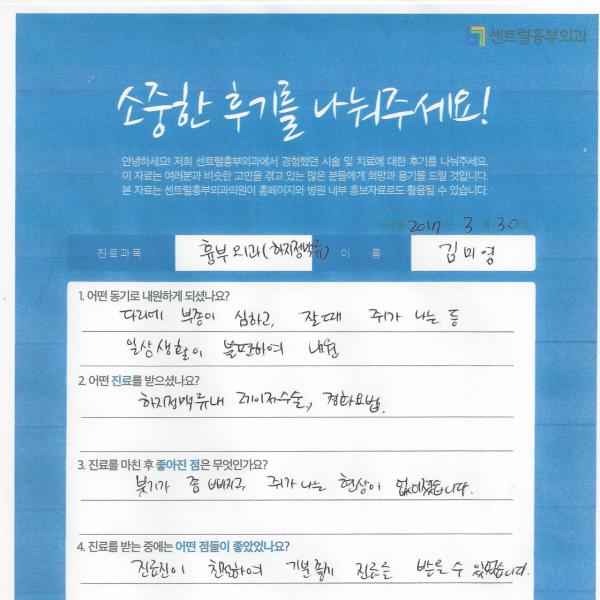 센트럴흉부외과
소중한 후기를 나눠주세요!
안녕하세요! 저희 센트럴흉부외과에서 경험했던 시술 및 치료에 대한 후기를 나눠주세요.
이 자료는 여러분과 비슷한 고민을 겪고 있는 많은 분들에게 희망과 용기를 드릴 것입니다.
본 자료는 센트럴흉부외과의원이 홈페이지와 병원 내부 홍보자료로도 활용될 수 있습니다.
작성일 2017 년 3 월 30 일
진료과목 흉부외과(하지정맥류) 이 름 김미영
1. 어떤 동기로 내원하게 되셨나요?
다리에 부종이 심하고, 잘때 쥐가 나는 등
일상생활이 불편하여 내원
2. 어떤 진료를 받으셨나요?
하지정맥류내 레이저수술, 경화요법.
3. 진료를 마친 후 좋아진 점은 무엇인가요?
붓기가 좀 빠지고 쥐가 나는 현상이 없어졌습니다.
4. 진료를 받는 중에는 어떤 점들이 좋았었나요?
진료진이 친절하여 기분 좋게 진료를 받을 수 있었습니다.